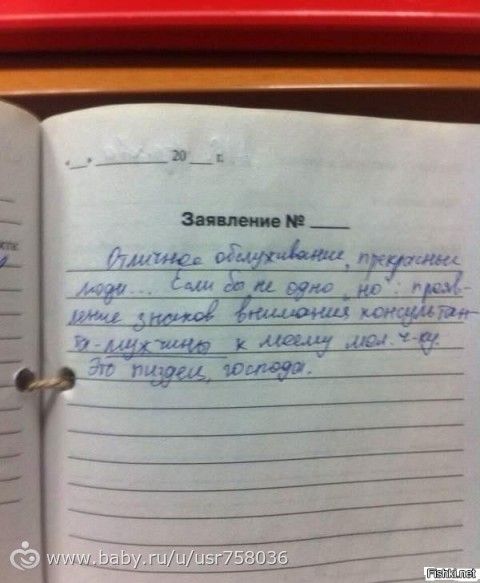 «__» ________ 20 ___ г.
Заявление № ____
Отличное обслуживание, прекрасные
люди... Если бы не одно "но": прояв-
ление знаков внимания консультан-
та-мужчины к моему мол. ч-ку.
Это пиздец, господа.
www.baby.ru/u/usr758036
Fishki.net